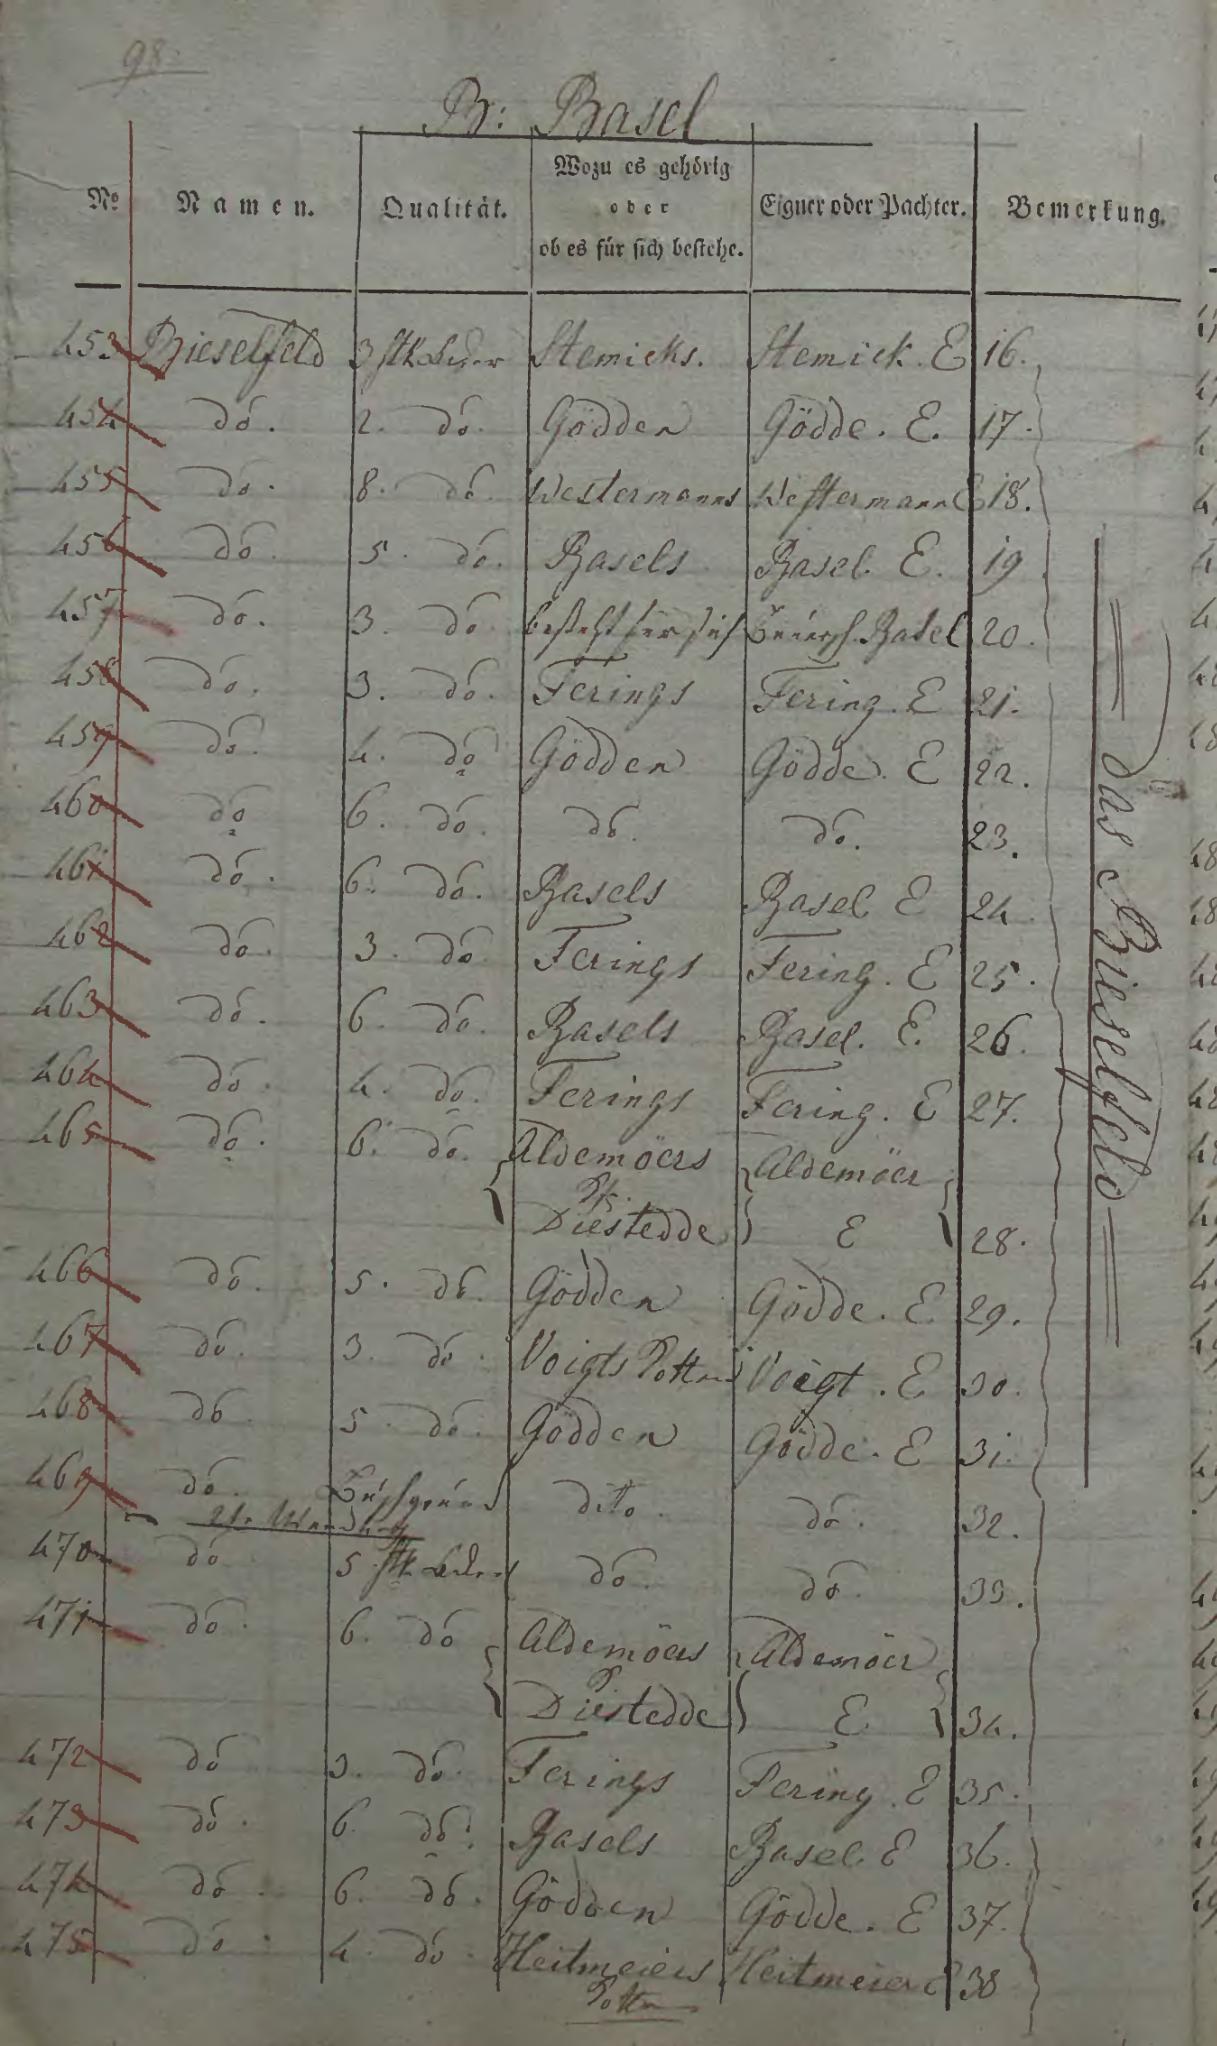 98.
Br: Basel
No Namen. Qualität. Wozu es gehörig oder ob es für sich bestehe. Eigner oder Pachter. Bemerkung.
453 Bieselfeld 3 stk Lider Stemicks. Stemick. E 16.
454 do. 2. do. Gödden Gödde. E. 17.
455 do. 8. do. Westermanns Westermann E 18.
456 do. 5. do. Basels Basel. E. 19
457 do. 3. do besteht für sich Basel 20.
458 do. 3. do. Ferings Fering. E 21.
459 do. 4. do Gödden Gödde. E 22.
460 do 6. do. do. do. 23.
461 do. 6. do. Basels Basel E 24
462 do. 3. do Ferings Fering. E 25.
463 do. 6. do. Basels Basel. E. 26.
464 do. 4. do. Ferings Fering. E 27.
465 do. 6. do. Aldemöers Aldemöer
Diestedde E 28.
466 do. 5. do. Gödden Gödde. E 29.
467 do. 3. do. Voigts Voigt. E 30.
468 do 5. do. Gödden Gödde. E 31.
469 do. dito. do. 32.
470 do 5 stk do. do. 33.
471 do. 6. do Aldemöers Aldemöer
Diestedde E. 34.
472 do 3. do. Ferings Fering. E 35.
473 do. 6. do. Basels Basel. E 36.
474 do. 6. do. Gödden Gödde. E 37.
475 do. 4. do. Heitmeiers Heitmeier E 38
das Bieselfeld